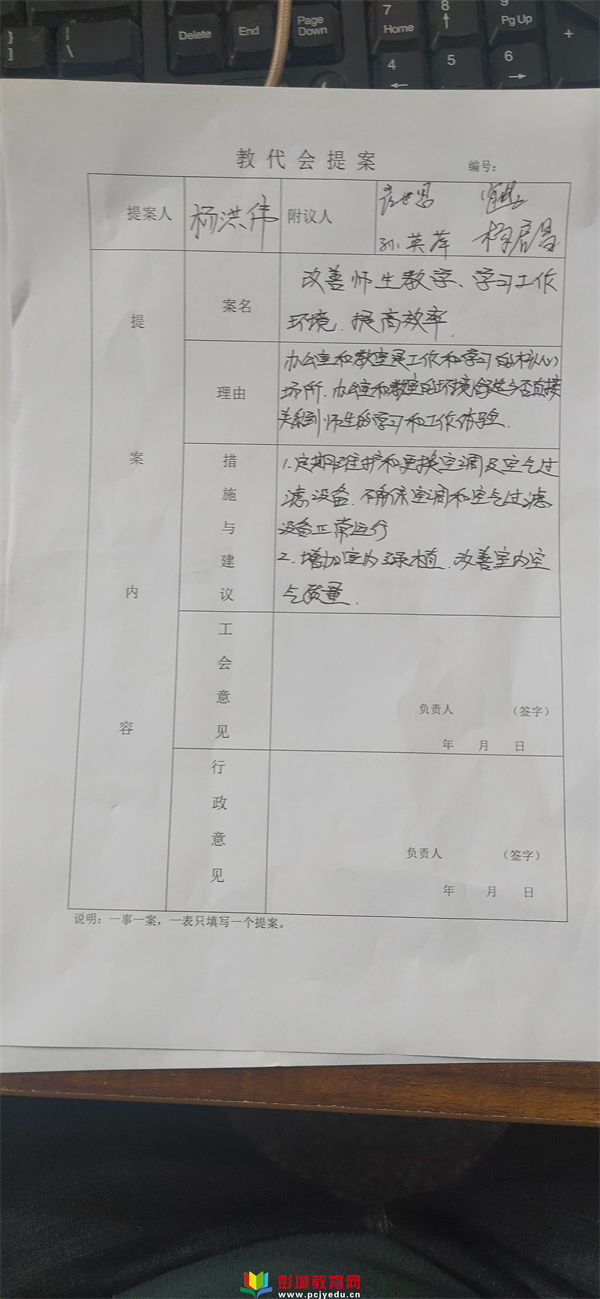 Delete End Page Down
7 Home 8 ↑ 9 Pg Up
4 ← 5 6 → +
教代会提案
编号:
提案人 杨洪伟 附议人
孙英萍
提案内容
案名
改善师生教学、学习工作
环境、提高效率.
理由
办公室和教室是工作和学习的核心
场所、办公室和教室的环境舒适与否直接
关系到师生的学习和工作体验.
措施与建议
1.定期维护和更换空调及空气过
滤设备.确保空调和空气过滤
设备正常运行
2.增加室内绿植、改善室内空
气质量.
工会意见
负责人 (签字)
年 月 日
行政意见
负责人 (签字)
年 月 日
说明:一事一案,一表只填写一个提案。
彭城教育网
www.pcjyedu.cn